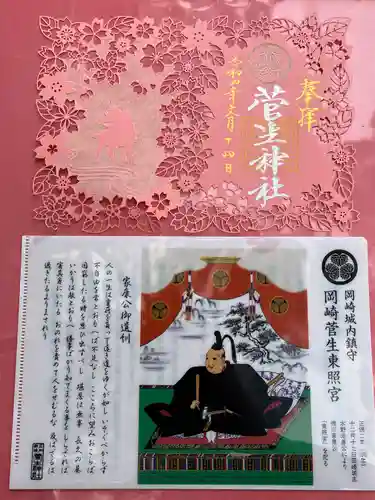 奉拝
菅生神社
令和四年六月十四日
岡崎城内鎮守
岡崎菅生東照宮
家康公御遺訓
人の一生は重荷を負うて遠き道をゆくが如し いそぐべからず
不自由を常とおもへば不足なし こころに望みおこらば
困窮したる時を思ひ出すべし 堪忍は無事 長久の基
いかりは敵とおもへ 勝事ばかり知てまくる事をしらざれば
害其身にいたる おのれを責めて人をせむるな 及ばざるは
過ぎたるよりまされり